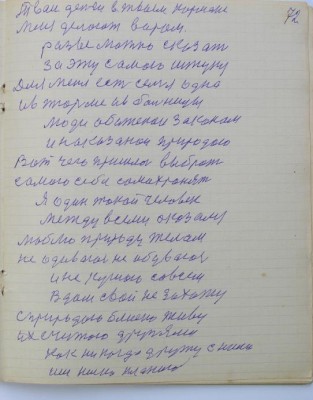 72
Твои деньги в твоем кормане
Меня делают вором.
разве можно сказат
За эту самою штуку
Для меня ест семя одна
и в тюрме и в болници
Люди обиженой Законом
и наказаной природою
Вот чего пришлос выброт
самого себя сохранят
Я один такой человек
между всеми оказалс
люблю природу телом
не одиваюс не обуваюс
и не курю совсем
В дом свой не захожу
С природою близко живу
их считою друзями
как никогда дружу с ними